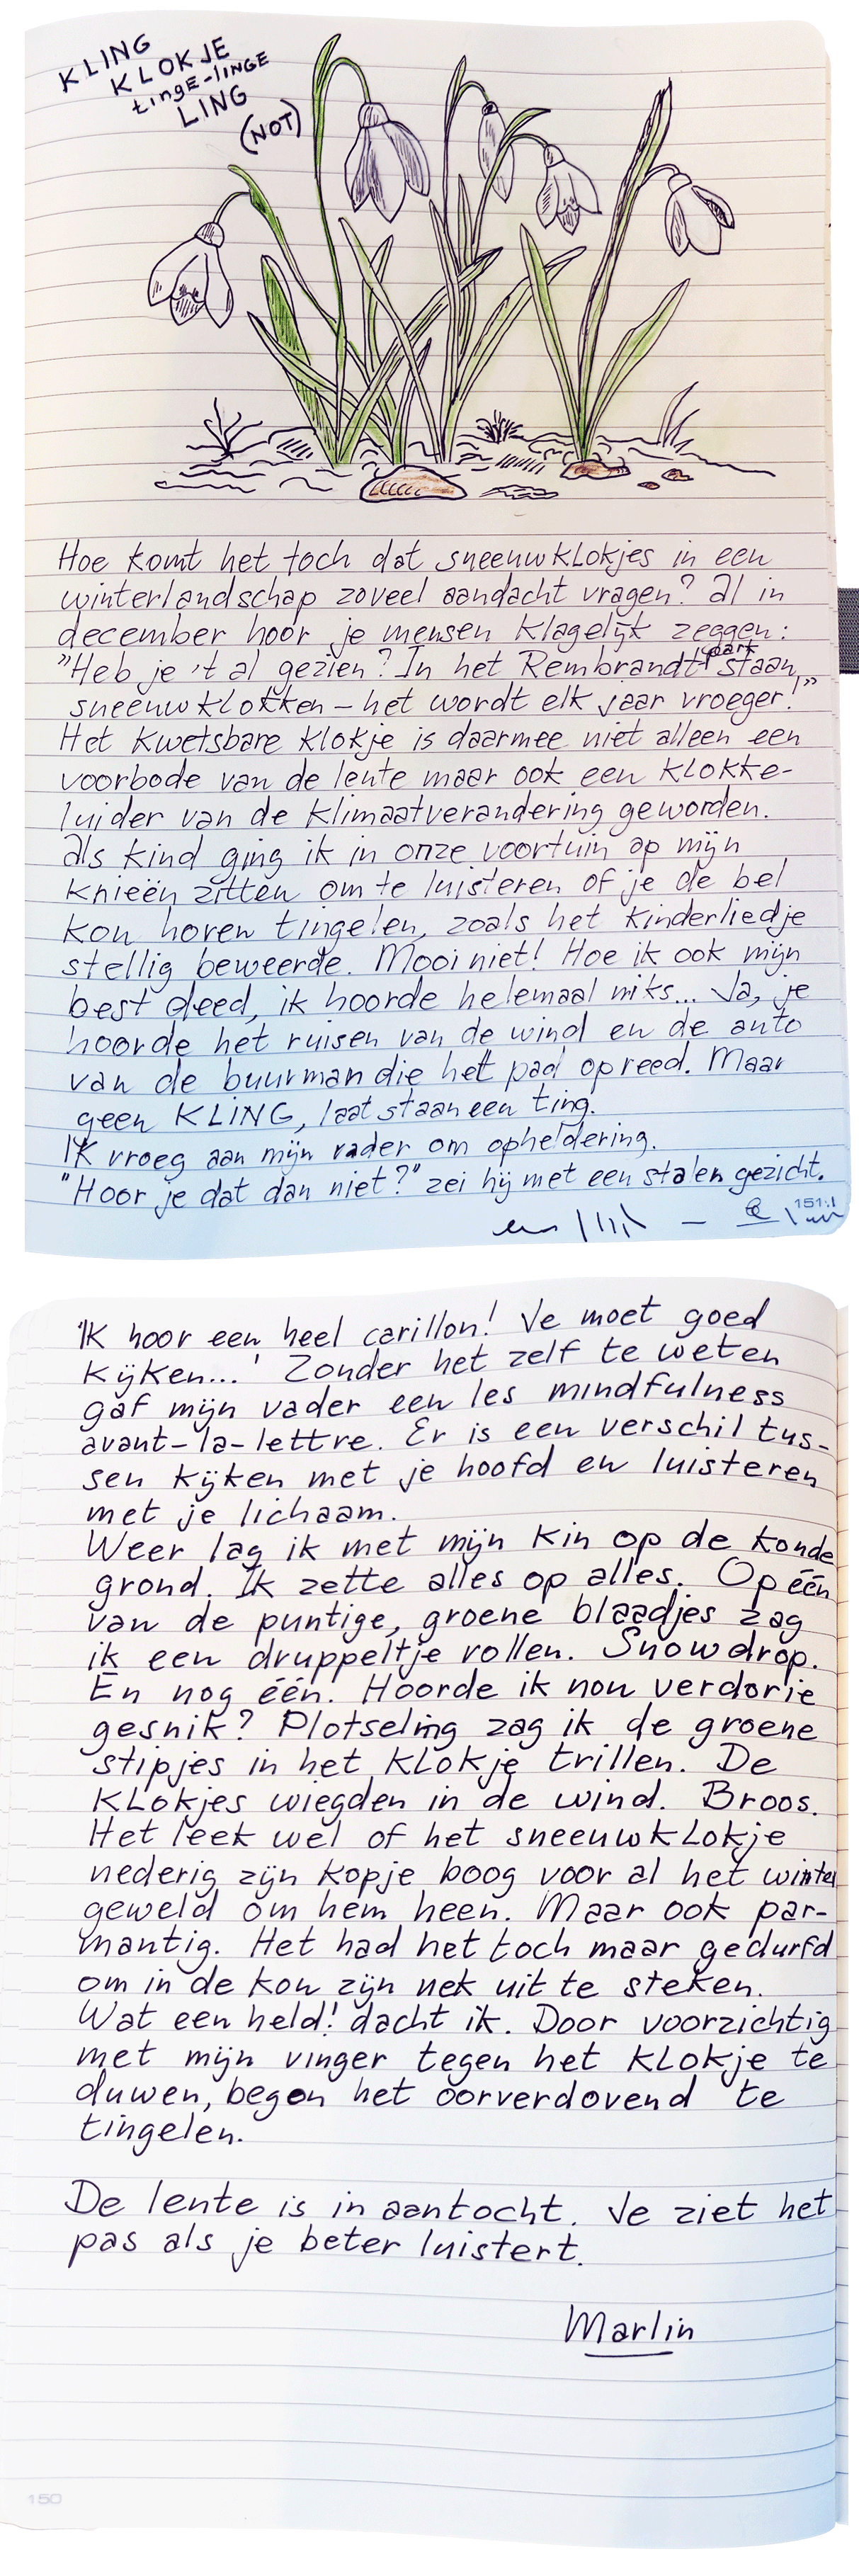 KLING
KLOKJE
tINGE-LINGE
LING
(NOT)
Hoe komt het toch dat sneeuwklokjes in een
winterlandschap zoveel aandacht vragen? Al in
december hoor je mensen klagelijk zeggen:
"Heb je 't al gezien? In het Rembrandtpark staan
sneeuwklokken – het wordt elk jaar vroeger!"
Het kwetsbare klokje is daarmee niet alleen een
voorbode van de lente maar ook een klokke-
luider van de klimaatverandering geworden.
Als kind ging ik in onze voortuin op mijn
knieën zitten om te luisteren of je de bel
kon horen tingelen, zoals het kinderliedje
stellig beweerde. Mooi niet! Hoe ik ook mijn
best deed, ik hoorde helemaal niks... Ja, je
hoorde het ruisen van de wind en de auto
van de buurman die het pad opreed. Maar
geen KLING, laat staan een ting.
Ik vroeg aan mijn vader om opheldering.
"Hoor je dat dan niet?" zei hij met een stalen gezicht.
151
'Ik hoor een heel carillon! Je moet goed
kijken...' Zonder het zelf te weten
gaf mijn vader een les mindfulness
avant-la-lettre. Er is een verschil tus-
sen kijken met je hoofd en luisteren
met je lichaam.
Weer lag ik met mijn kin op de koude
grond. Ik zette alles op alles. Op één
van de puntige, groene blaadjes zag
ik een druppeltje rollen. Snowdrop.
En nog één. Hoorde ik nou verdorie
gesnik? Plotseling zag ik de groene
stipjes in het klokje trillen. De
klokjes wiegden in de wind. Broos.
Het leek wel of het sneeuwklokje
nederig zijn kopje boog voor al het winter
geweld om hem heen. Maar ook par-
mantig. Het had het toch maar gedurfd
om in de kou zijn nek uit te steken.
Wat een held! dacht ik. Door voorzichtig
met mijn vinger tegen het klokje te
duwen, begon het oorverdovend te
tingelen.
De lente is in aantocht. Je ziet het
pas als je beter luistert.
Marlin
150